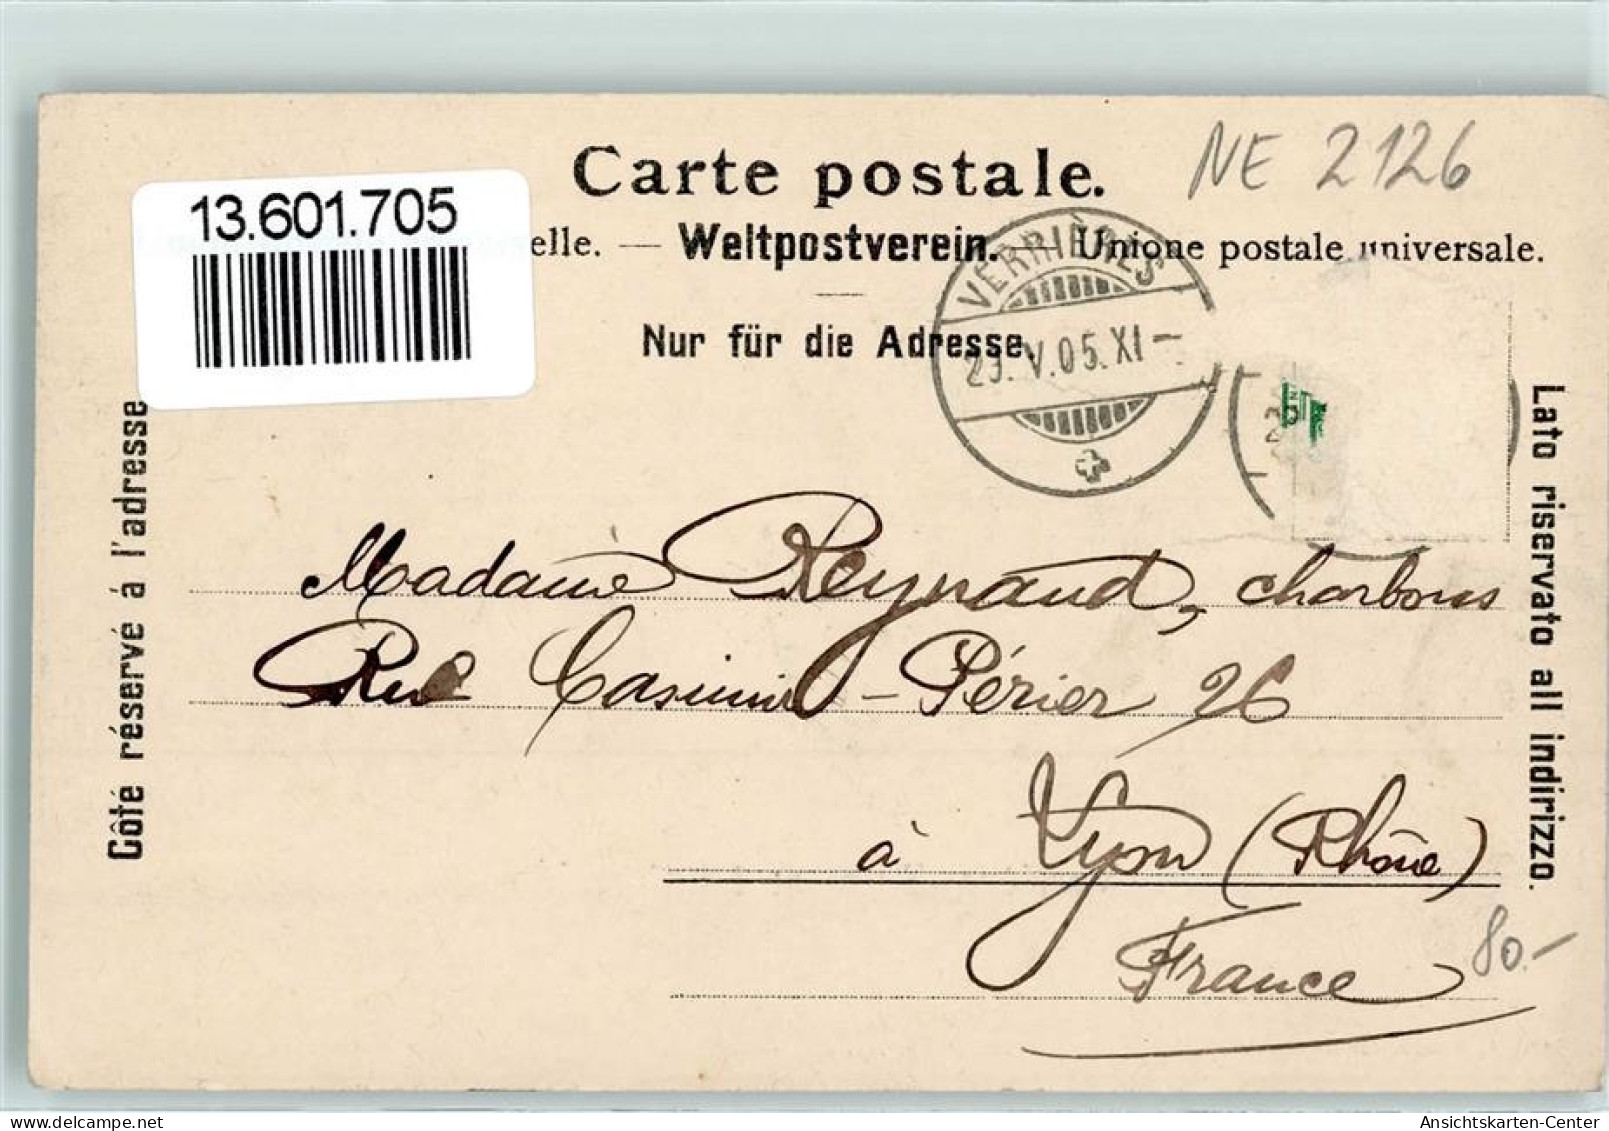 Carte postale.
NE 2126
13.601.705
elle. — Weltpostverein. — Unione postale universale.
Nur für die Adresse.
VERRIÈRES
V.05.XI–
Côté réservé à l'adresse
Lato riservato all indirizzo.
Madame Reynaud, charbons
Rue Casimir-Périer 26
à Lyon (Rhône)
France
80.–
Ansichtskarten-Center